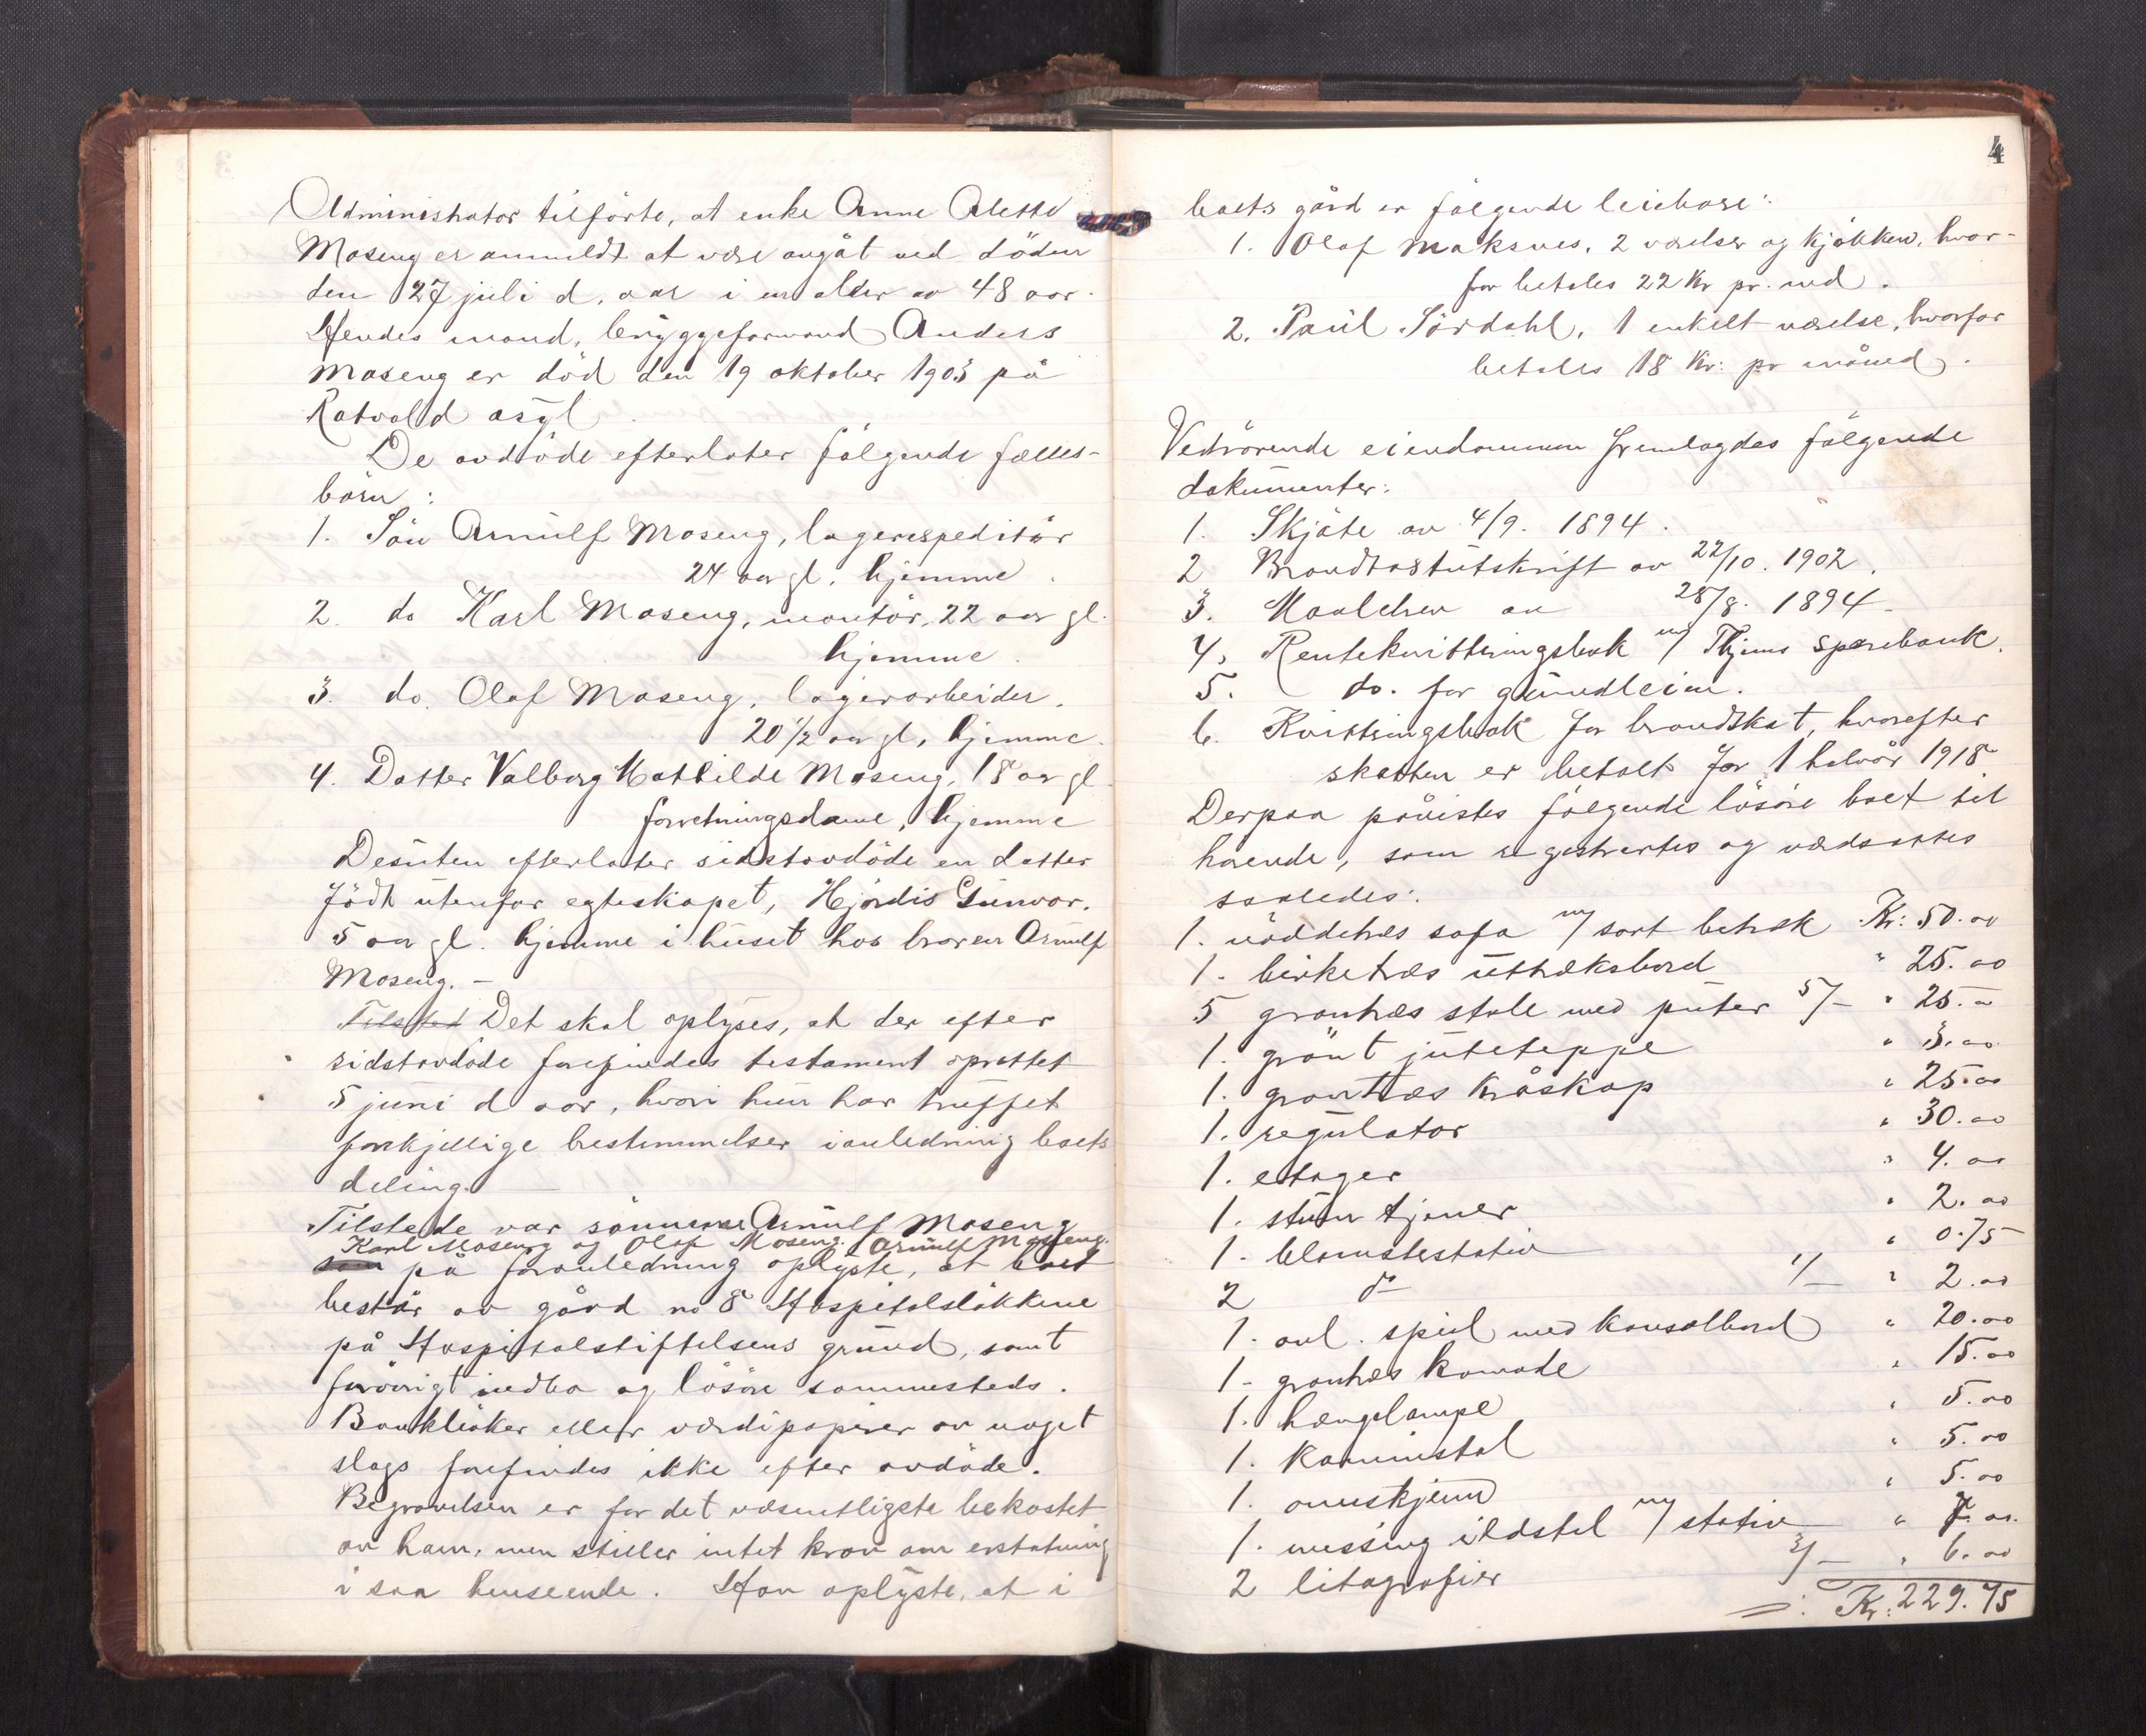 Administrator tilförte, at enke Anne Alette
Moseng er anmeldt at være avgåt ved döden
den 27 juli d. aar i en alder av 48 aar.
Hendes mand, bryggeformand Anders
Moseng er död den 19 oktober 1903 på
Rotvold asyl.
De avdöde efterlater fölgende fælles-
börn:
1. Sön Arnulf Moseng, lagerexpeditör
24 aar gl. hjemme.
2. do Karl Moseng, montör, 22 aar gl.
hjemme.
3. do. Olaf Moseng, lagerarbeider.
20 1/2 aar gl, hjemme.
4. Datter Valborg Mathilde Moseng, 18 aar gl
forretningsdame, hjemme
Desuten efterlater sidstavdöde en datter
födt utenfor egteskapet, Hjördis Gunvor.
5 aar gl. hjemme i huset hos broren Arnulf
Moseng. -
Tilsted Det skal oplyses, at der efter
sidstavdöde forefindes testament oprettet
5 juni d aar, hvori hun har truffet
forskjellige bestemmelser i anledning boets
deling.
Tilstede var sönnerne Arnulf Moseng
Karl Moseng og Olaf Moseng. Arnulf Moseng.
som på foranledning oplyste, at boet
består av gård no 8 Hospitalslökkene
på Hospitalstiftelsens grund, samt
forövrigt indbo og lösöre sammesteds.
Bankböker eller værdipapirer av noget
slags forefindes ikke efter avdöde.
Begravelsen er for det væsentligste bekostet
av ham, men stiller intet krav om erstatning
i saa henseende. Han oplyste, at i
4
boets gård er fölgende leieboere:
1. Olaf Maksnes, 2 værelser og kjökken, hvor-
for betales 22 Kr pr. md.
2. Paul Sördahl, 1 enkelt værelse, hvorfor
betales 18 Kr: pr måned.
Vedrörende eiendommen fremlagdes fölgende
dokumenter:
1. Skjöte av 4/9. 1894.
2 Brandtakstutskrift av 22/10. 1902.
3. Maalebrev av 28/8. 1894.
4. Rentekvitteringsbok m/ Thjems sparebank.
5. do. for grundleien.
6. Kvitteringsbok for brandskat, hvorefter
skatten er betalt for 1 halvår 1918
Derpaa påvistes fölgende lösöre boet til
hörende, som registrertes og værdsattes
saaledes:
1. nöddetræs sofa m/ sort betræk Kr: 50.00
1. birketræs uttræksbord " 25.00
5 grantræs stole med puter 5/- " 25.00
1. grönt juteteppe " 3.00
1. grantræs kråskap " 25.00
1. regulator " 30.00
1. etager " 4.00
1. stum tjener " 2.00
1. blomsterstativ " 0.75
2 do 1/- " 2.00
1. avl. speil med konsolbord " 20.00
1. grantræs komode " 15.00
1. hængelampe " 5.00
1. kaminstol " 5.00
1. ovnskjerm " 5.00
1. messing ildstel m/ stativ " 7.00.
2 litografier 3/- " 6.00
=: Kr: 229.75